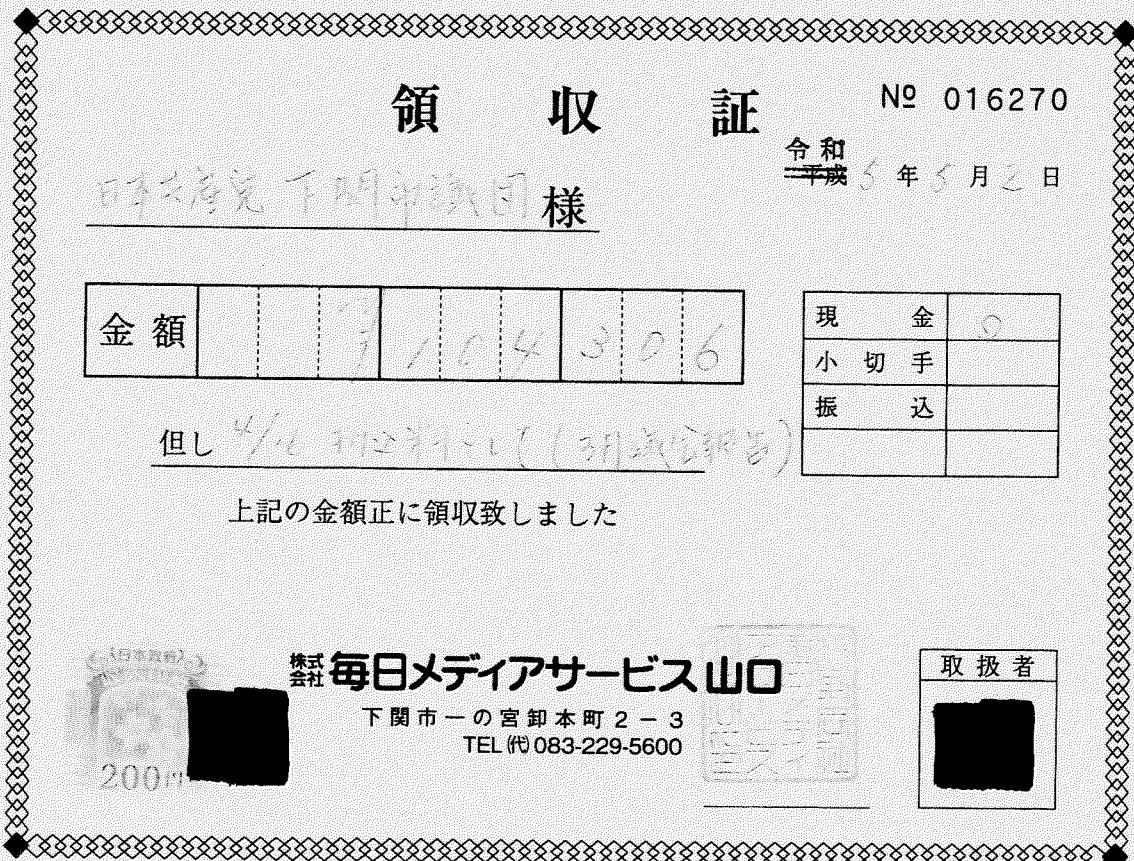 領収証
№ 016270
令和
平成 6 年 5 月 2 日
日本共産党 下関市議団 様
金額 ¥1,104,306
現金 〇
小切手
振込
但し 4/16 折込料として(3月議会報告)
上記の金額正に領収致しました
200円
株式会社 毎日メディアサービス山口
下関市一の宮卸本町2-3
TEL(代)083-229-5600
取扱者